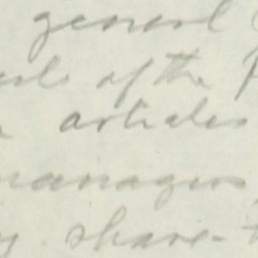 general
of the
articles
managers
share-